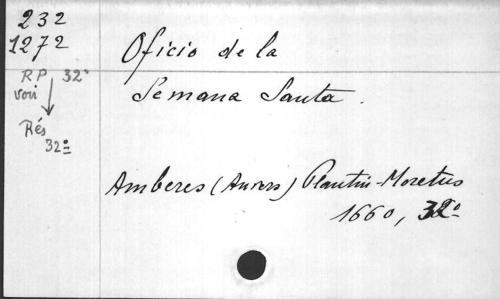 232
1272
Oficio de la
RP 32º
voir
Semana Santa.
↓
Rés
32º
Amberes (Anvers) Plantin-Moretus
1660, 32º